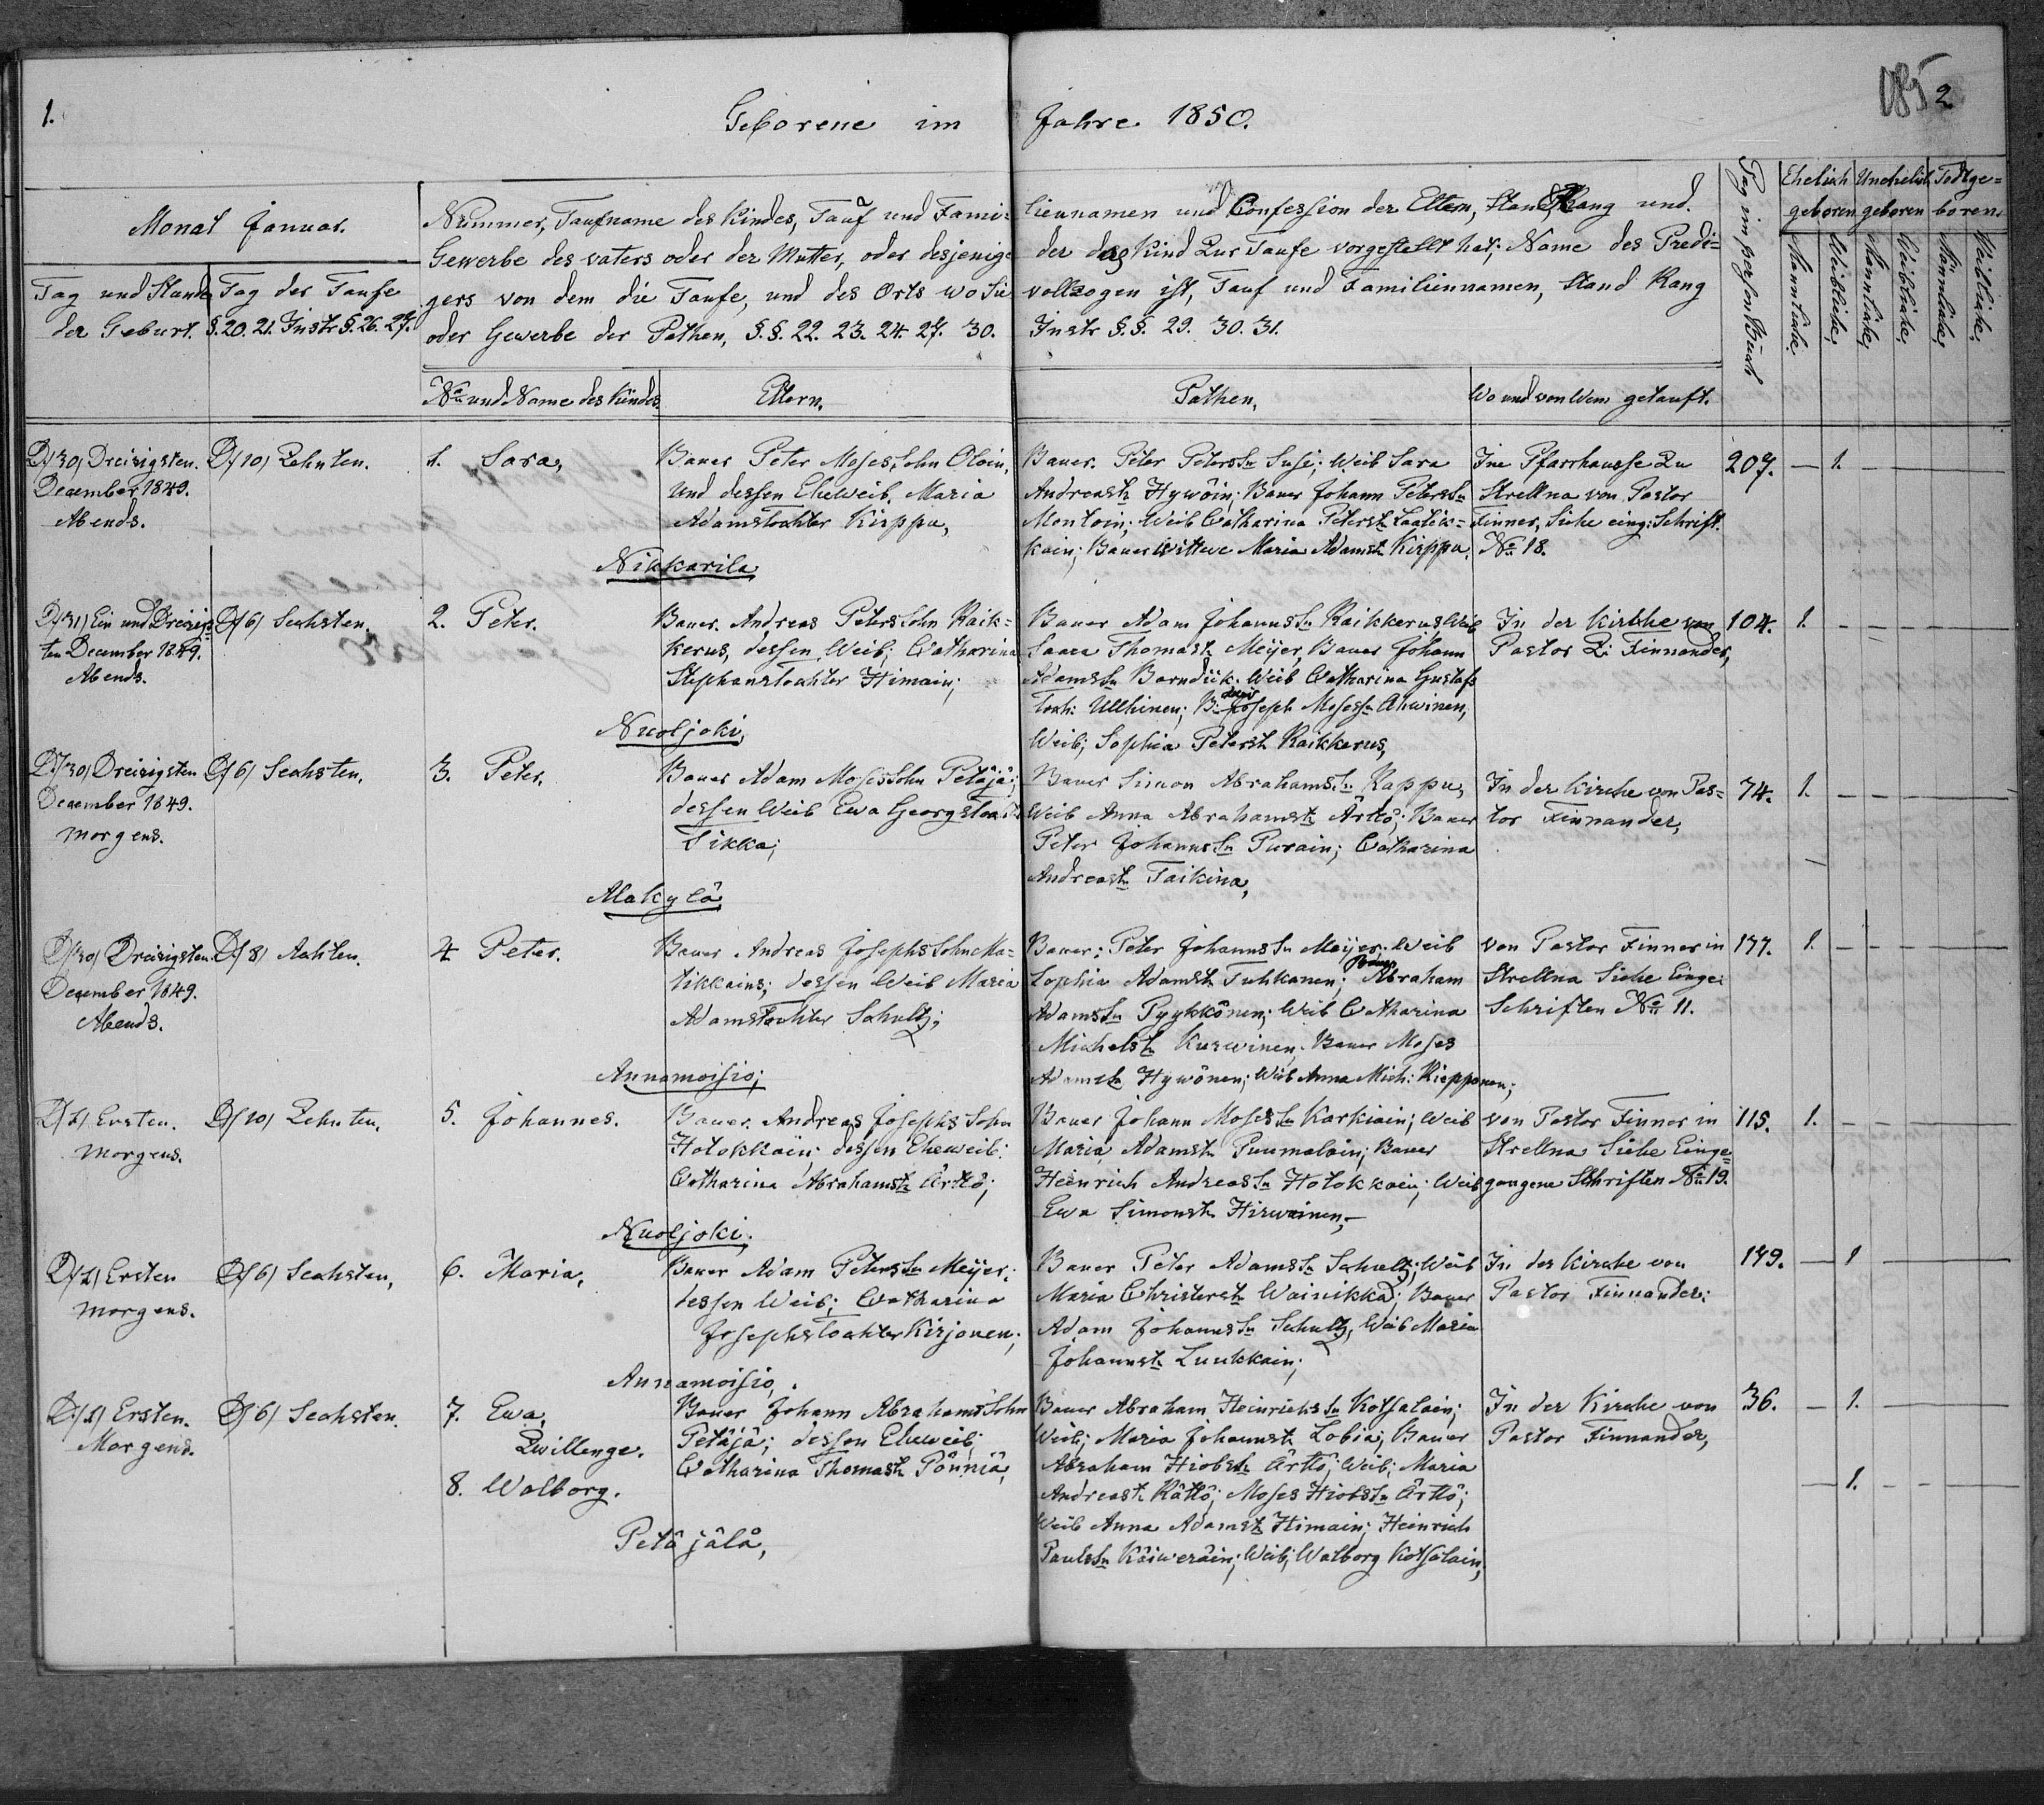 1.
085 2
Geborene im Jahre 1850.
Monat Januar.
Tag und Stunde der Geburt.
Tag der Taufe §. 20. 21. Instr §. 26. 27.
Nummer, Taufname des Kindes, Tauf und Fami= liennamen und Confession der Eltern, Stand, Rang und
Gewerbe des vaters oder der Mutter, oder desjenige der das Kind Zur Taufe vorgestellt hat; Name des Predi=
gers von dem die Taufe, und des Orts wo Sie vollzogen ist, Tauf und Familiennamen, Stand Rang
oder Gewerbe der Pathen, §.§. 22. 23. 24. 27. 30. Instr §.§. 29. 30. 31.
No und Name des Kindes.
Eltern.
Pathen,
Wo und von Wem getauft.
Ehelich geboren
Unehelich geboren
Todtge= boren
Mannliche
Weibliche
Mannliche
Weibliche
Männliche
Weibliche
D/30, Dreizigsten.
December 1849.
Abends.
D/10, Zehnten.
1. Sara,
Bauer Peter MosesSohn Oloin,
Und dessen Eheweib, Maria
Adamstochter Kirppu,
Nikkarila
Bauer. Peter Peterssn Susi; Weib Sara
Andreastr Hywöin; Bauer Johann Peterssn
Montoin; Weib Catharina Peterstr Laatik=
kain; Bauer Wittwe Maria Adamstr Kirppu.
Im Pfarrhausse Zu
Strellna von Pastor
Finner, Siehe eing: Schrift.
No 18.
207. — 1.
D/31, Ein und Dreizigs
ten December 1849.
Abends.
D/6, Sechsten.
2. Peter.
Bauer. Andreas PetersSohn Raik=
kerus, dessen Weib; Catharina
Stephanstochter Himain;
Nuoljoki,
Bauer Adam Johannssn Raikkerus Weib
Saara Thomastr Meÿer, Bauer Johann
Adamssn Weib Catharina Gustafs
Toch: Ullhinen; Joseph Mosessn Ahwinen,
Weib; Sophia Peterstr Raikkerus,
In der Kirche von
Pastor Z: Finnander,
104. 1.
D/30, Dreizigsten
December 1849.
morgens.
D/6, Sechsten,
3. Peter,
Bauer Adam MosesSohn Petäjä;
dessen Weib Ewa Georgstocht
Sikka;
Alakylä
Bauer Simon Abrahamssn Kappu,
Weib Anna Abrahamstr Ärtlö; Bauer
Peter Johannssn Purain; Catharina
Andreastr Taikina,
In der Kirche von Pas=
tor Finnander,
74. 1.
D/30, Dreizigsten.
December 1849.
Abends.
D/8, Achten.
4 Peter.
Bauer Andreas JosephsSohn Ma=
tikkains; dessen Weib Maria
Adamstochter Schultz;
Annamoisio;
Bauer; Peter Johannssn Meÿer; Weib
Sophia Adamstr Tuhkanen; Bauer Abraham
Adamssn Pyykkönen; Weib Catharina
Michelstr Kurwinen; Bauer Moses
Adamssn Hywönen; Weib Anna Mich: Riepponen;
von Pastor Finner in
Strellna Siehe Einge:
Schriften No 11.
177. 1.
D/1, Ersten.
Morgens.
D/10, Zehnten,
5. Johannes.
Bauer. Andreas Josephs Sohn
Hotokkain; dessen Eheweib:
Catharina Abrahamstr Ärtlö;
Nuoljoki;
Bauer Johann Mosessn Karkiain; Weib
Maria, Adamstr Puumalain; Bauer
Heinrich Andreassn Hotokkain; Weib
Ewa Simonstr Hirwainen,
von Pastor Finner in
Strellna Siehe Einge=
gangene Schriften No 19.
115. 1.
D/1, Ersten
morgens.
D/6, Sechsten,
6. Maria,
Bauer Adam Peterssn Meÿer;
dessen Weib; Catharina
Josephstochter Kirjonen;
Annamoisio,
Bauer Peter Adamssn Schultz; Weib
Maria Christerstr Wainikka; Bauer
Adam Johannssn Schultz, Weib Maria
Johannstr Luukkain;
In der Kirche von
Pastor Finnander:
179. — 1
D/1, Ersten.
Morgens.
D/6, Sechsten.
7. Ewa,
Zwillenge.
8. Walborg.
Bauer Johann AbrahamsSohn
Petäjä; dessen Eheweib;
Catharina Thomastr Pönniä,
Petäjälä,
Bauer Abraham Heinrichssn Kotsalain;
Weib; Maria Johannstr Lobia; Bauer
Abraham Hiobssn Ärtlö; Weib; Maria
Andreastr Rättö; Moses Hiobssn Ärtlö;
Weib Anna Adamstr Himain; Heinrich
Paulssn Käiweräin; Weib; Walborg Kotsalain,
In der Kirche von
Pastor Finnander,
36. — 1.
— 1.